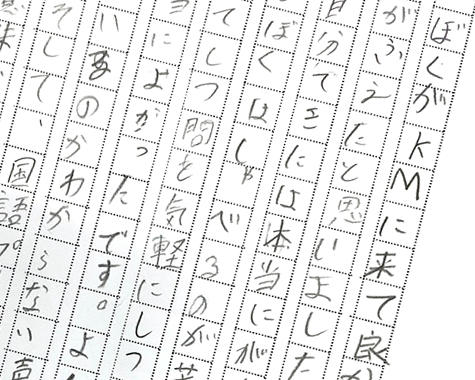 ぼくがKMに来て良か
がふえたと思いよした
自分てきには本当にが
ぼくはしゃべるのが苦
てしつ問を気軽にしつ
によかったです。よ
いるのかわからない
そして、国語